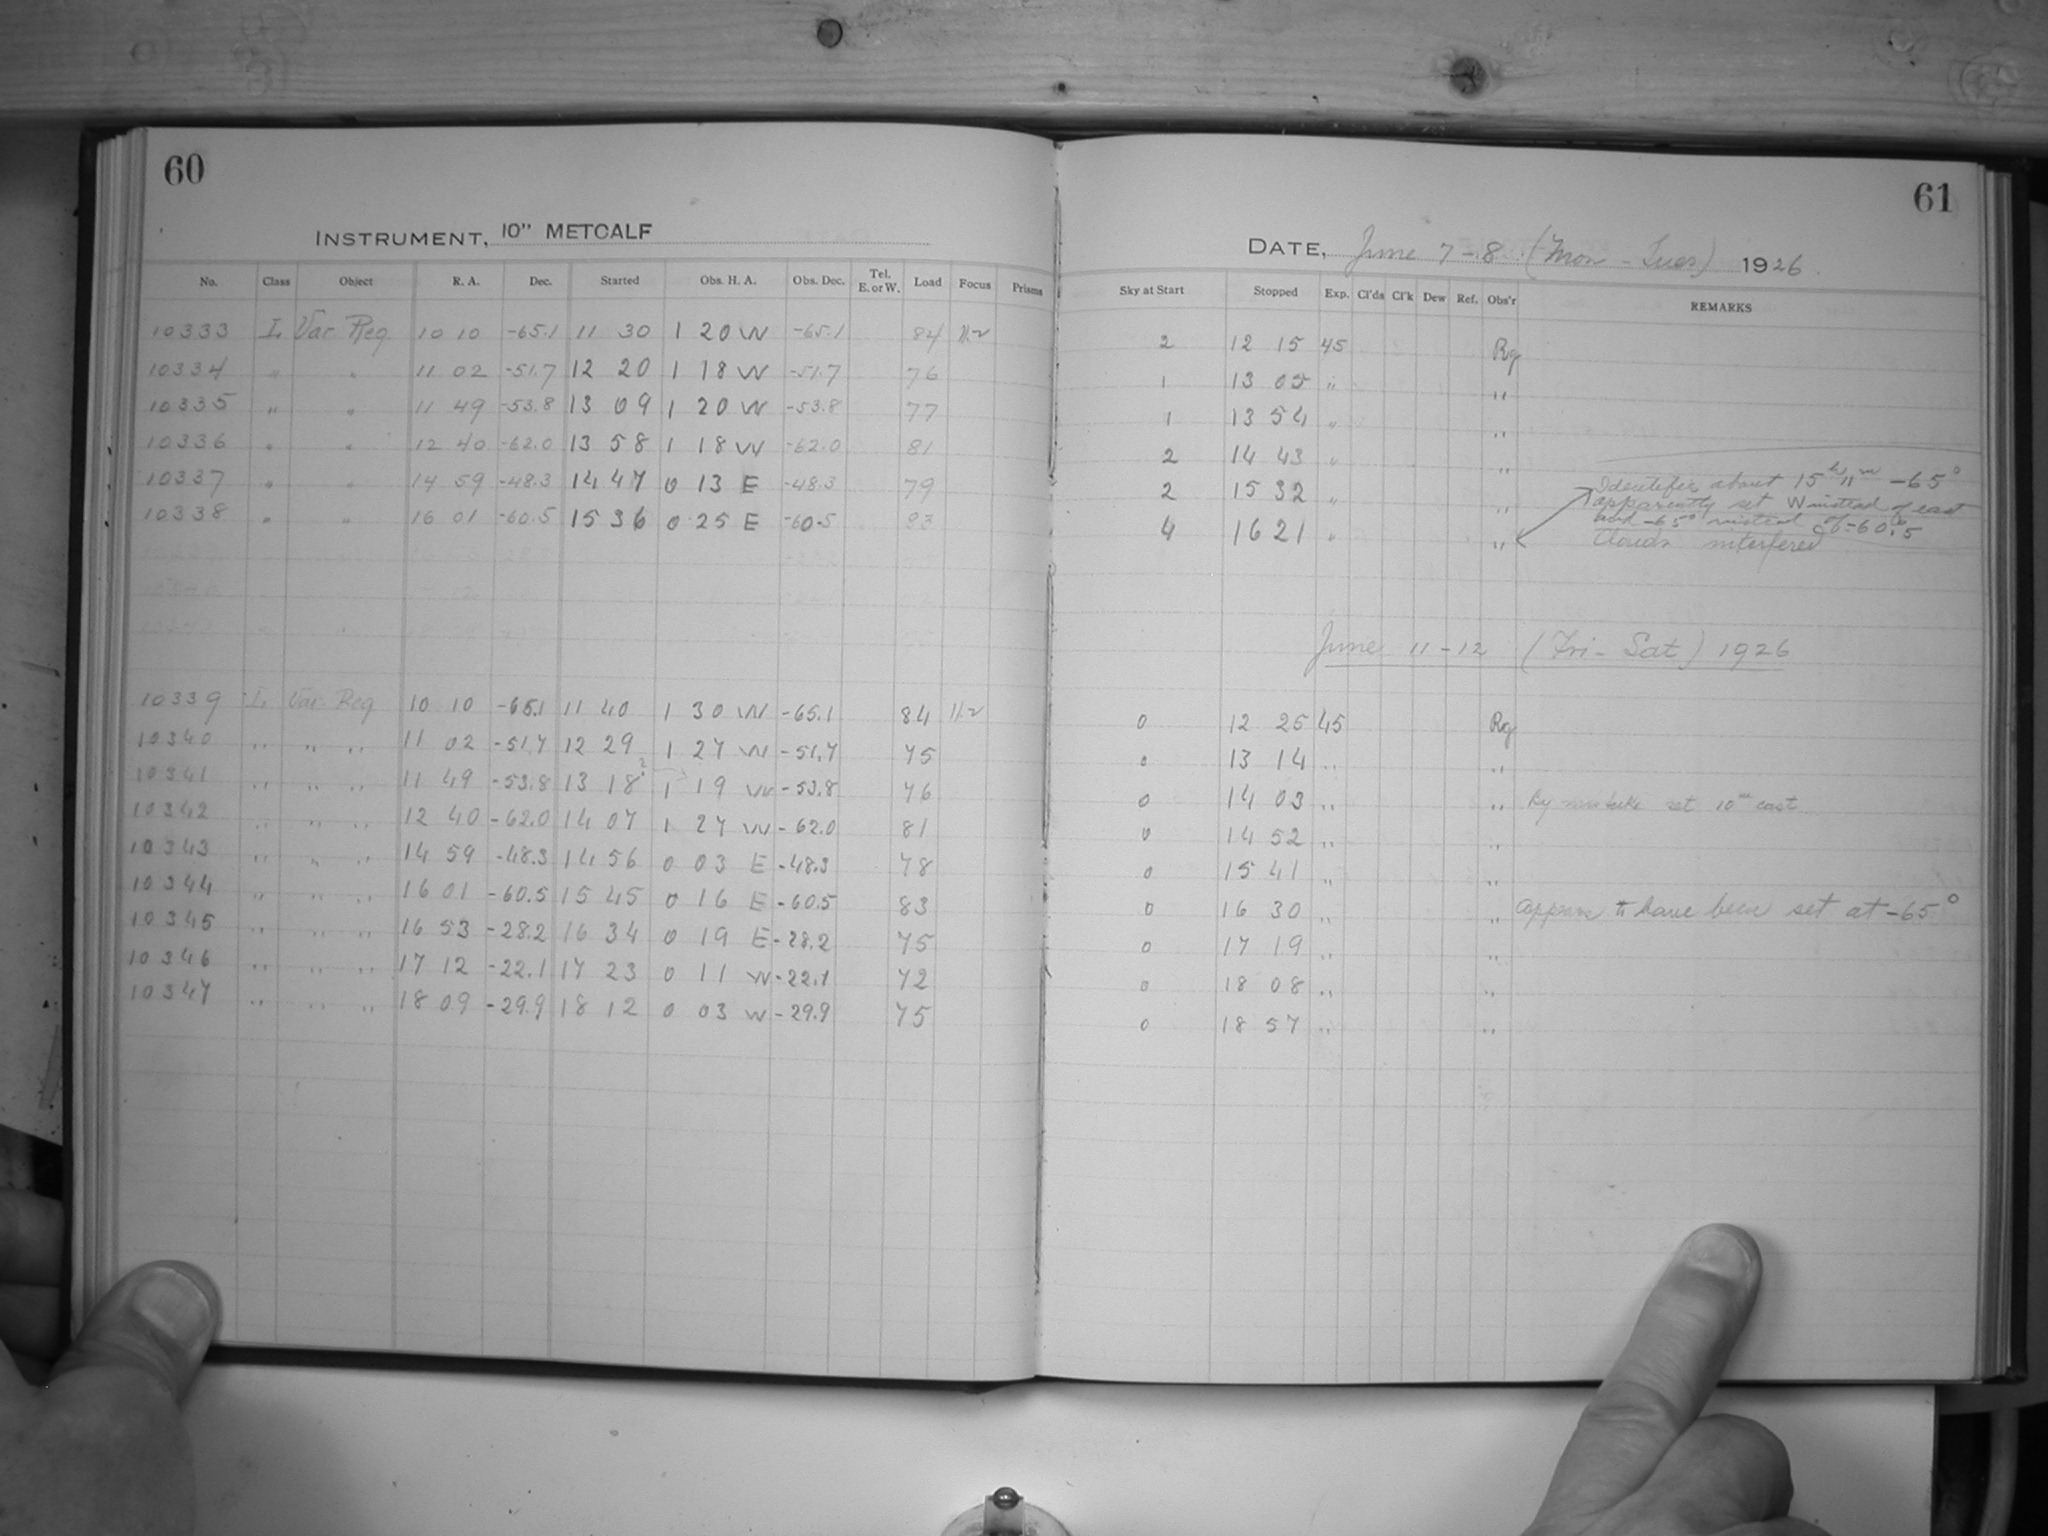 60
INSTRUMENT, 10" METCALF
No. Class Object R. A. Dec. Started Obs. H. A. Obs. Dec. Tel. E. or W. Load Focus Prisms
10333 I, Var Reg 10 10 -65.1 11 30 1 20 W -65.1 84 11.2
10334 " " 11 02 -51.7 12 20 1 18 W -51.7 76
10335 " " 11 49 -53.8 13 09 1 20 W -53.8 77
10336 " " 12 40 -62.0 13 58 1 18 W -62.0 81
10337 " " 14 59 -48.3 14 47 0 13 E -48.3 79
10338 " " 16 01 -60.5 15 36 0 25 E -60.5 83
10339 I, Var Reg 10 10 -65.1 11 40 1 30 W -65.1 84 11.2
10340 " " " 11 02 -51.7 12 29 1 27 W -51.7 75
10341 " " " 11 49 -53.8 13 18 ? 1 19 W -53.8 76
10342 " " " 12 40 -62.0 14 07 1 27 W -62.0 81
10343 " " " 14 59 -48.3 14 56 0 03 E -48.3 78
10344 " " " 16 01 -60.5 15 45 0 16 E -60.5 83
10345 " " " 16 53 -28.2 16 34 0 19 E -28.2 75
10346 " " " 17 12 -22.1 17 23 0 11 W -22.1 72
10347 " " " 18 09 -29.9 18 12 0 03 W -29.9 75
61
DATE, June 7-8 (Mon - Tues) 1926
Sky at Start Stopped Exp. Cl'ds Cl'k Dew Ref. Obs'r REMARKS
2 12 15 45 Rg
1 13 05 " "
1 13 54 " "
2 14 43 " "
2 15 32 " "
4 16 21 " "
Identifies about 15h 11m -65°
apparently set W instead of east
and -65° instead of -60°.5
Clouds interfered
June 11-12 (Fri-Sat) 1926
0 12 25 45 Rg
0 13 14 " "
0 14 03 " " By mistake set 10m east
0 14 52 " "
0 15 41 " "
0 16 30 " " appears to have been set at -65°
0 17 19 " "
0 18 08 " "
0 18 57 " "